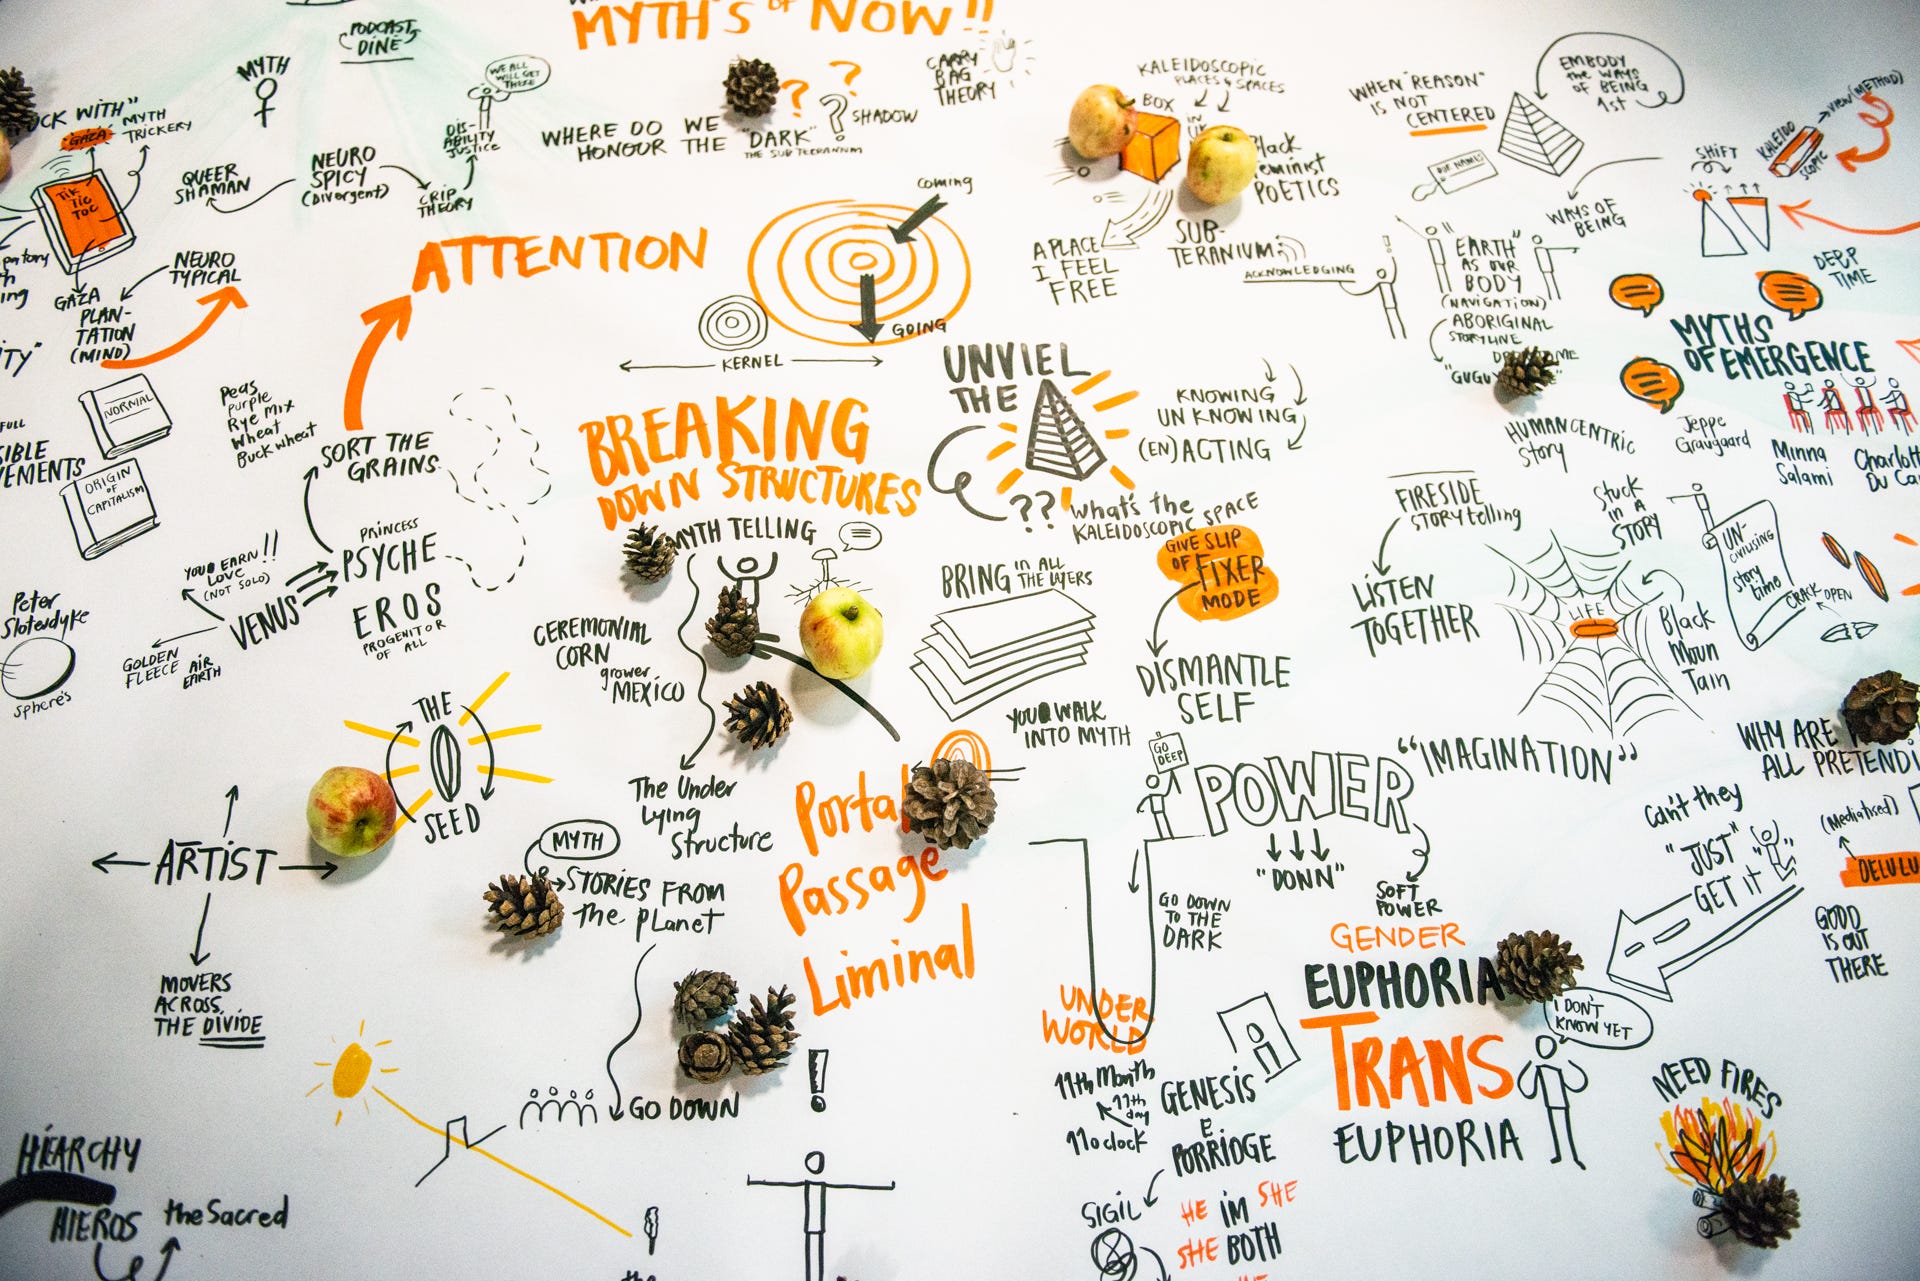 MYTH'S OF NOW!!
PODCAST
DINE
MYTH
WE ALL
WILL GET
THERE
WITH"
GAZA
MYTH
TRICKERY
TIK
TIC
TOC
QUEER
SHAMAN
NEURO
SPICY
(Divergent)
DIS-
ABILITY
JUSTICE
CRIP
THEORY
NEURO
TYPICAL
GAZA
PLAN-
TATION
(MIND)
WHERE DO WE
HONOUR THE "DARK"
THE SUBTERRANIUM
?
?
?
SHADOW
CARRY
BAG
THEORY
KALEIDOSCOPIC
PLACES & SPACES
BOX
IN
Black
Feminist
POETICS
A PLACE
I FEEL
FREE
SUB-
TERANIUM
ACKNOWLEDGING
WHEN "REASON"
IS NOT
CENTERED
EMBODY
the WAYS
OF BEING
1st
OUR NAMES
WAYS OF
BEING
"EARTH"
AS OUR
BODY
(NAVIGATION)
ABORIGINAL
STORYLINE
"GUGU
SHIFT
KALEIDO
SCOPIC
VIEW (METHOD)
DEEP
TIME
MYTHS
OF EMERGENCE
Jeppe
Graugaard
Minna
Salami
Charlott
Du Ca
HUMAN CENTRIC
Story
ATTENTION
coming
GOING
KERNEL
NORMAL
ORIGIN
OF
CAPITALISM
Peas
purple
Rye Mix
Wheat
Buckwheat
SORT THE
GRAINS
YOU EARN!!
LOVE
(NOT SOLO)
PRINCESS
PSYCHE
VENUS
EROS
PROGENITOR
OF ALL
GOLDEN
FLEECE
AIR
EARTH
Peter
Sloterdyke
Sphere's
BREAKING
DOWN STRUCTURES
MYTH TELLING
CEREMONIAL
CORN
grower
MEXICO
The Under
Lying
Structure
UNVIEL
THE
??
What's the
KALEIDOSCOPIC SPACE
KNOWING
UN KNOWING
(EN)ACTING
BRING IN ALL
THE LAYERS
GIVE SLIP
OF FIXER
MODE
DISMANTLE
SELF
YOU WALK
INTO MYTH
FIRESIDE
STORYtelling
LISTEN
TOGETHER
Stuck
in A
STORY
LIFE
Black
Moun
Tain
UN-
CIVILISING
Story
time
CRACK OPEN
THE
SEED
ARTIST
MOVERS
ACROSS,
THE DIVIDE
MYTH
STORIES FROM
the PLanet
GO DOWN
Portal
Passage
Liminal
GO
DEEP
POWER
"DONN"
SOFT
POWER
"IMAGINATION"
GO DOWN
TO THE
DARK
UNDER
WORLD
WHY ARE
ALL PRETENDI
Can't they
"JUST"
GET IT
(Mediatised)
DELULU
GOOD
IS OUT
THERE
GENDER
EUPHORIA
TRANS
EUPHORIA
I DON'T
KNOW YET
11th Month
11th
day
11o clock
GENESIS
E.
PORRIDGE
SIGIL
HE IM SHE
SHE BOTH
NEED FIRES
HIEARCHY
HIEROS
the Sacred
!